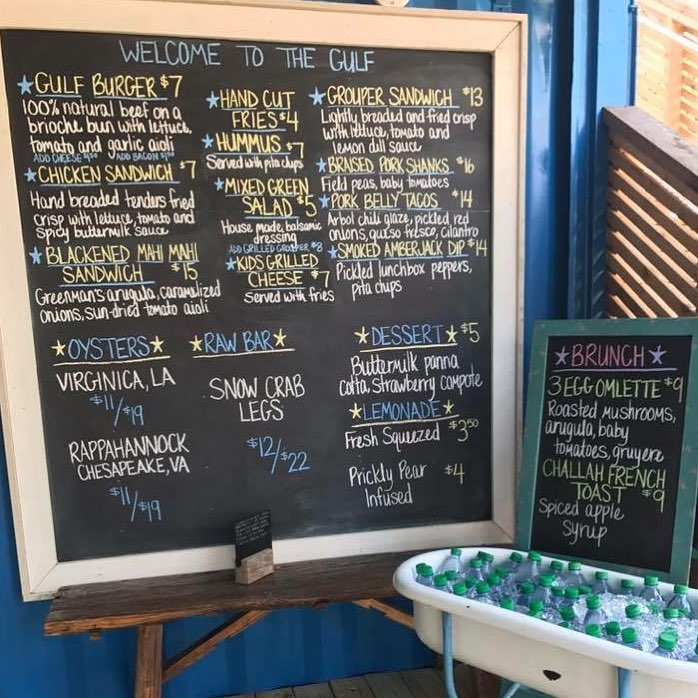 WELCOME TO THE GULF
GULF BURGER $7
100% natural beef on a
brioche bun with lettuce,
tomato and garlic aioli
ADD CHEESE
ADD BACON
CHICKEN SANDWICH $7
Hand breaded tenders fried
crisp with lettuce, tomato and
spicy buttermilk sauce
BLACKENED MAHI MAHI
SANDWICH $15
Greenman's arugula, caramelized
onions, sun-dried tomato aioli
HAND CUT
FRIES $4
HUMMUS $7
Served with pita chips
MIXED GREEN
SALAD $5
House made, balsamic
dressing
ADD GRILLED GROUPER $8
KIDS GRILLED
CHEESE $7
Served with fries
GROUPER SANDWICH $13
Lightly breaded and fried crisp
with lettuce, tomato and
lemon dill sauce
BRAISED PORK SHANKS $16
Field peas, baby tomatoes
PORK BELLY TACOS $14
Arbol chili glaze, pickled red
onions, queso fresco, cilantro
SMOKED AMBERJACK DIP $14
Pickled lunchbox peppers,
pita chips
OYSTERS
VIRGINICA, LA
$11/$19
RAPPAHANNOCK
CHESAPEAKE, VA
$11/$19
RAW BAR
SNOW CRAB
LEGS
$12/$22
DESSERT $5
Buttermilk panna
cotta, strawberry compote
LEMONADE
Fresh Squeezed $3.50
Prickly Pear $4
Infused
BRUNCH
3 EGG OMLETTE $9
Roasted mushrooms,
arugula, baby
tomatoes, gruyere
CHALLAH FRENCH
TOAST $9
Spiced apple
syrup